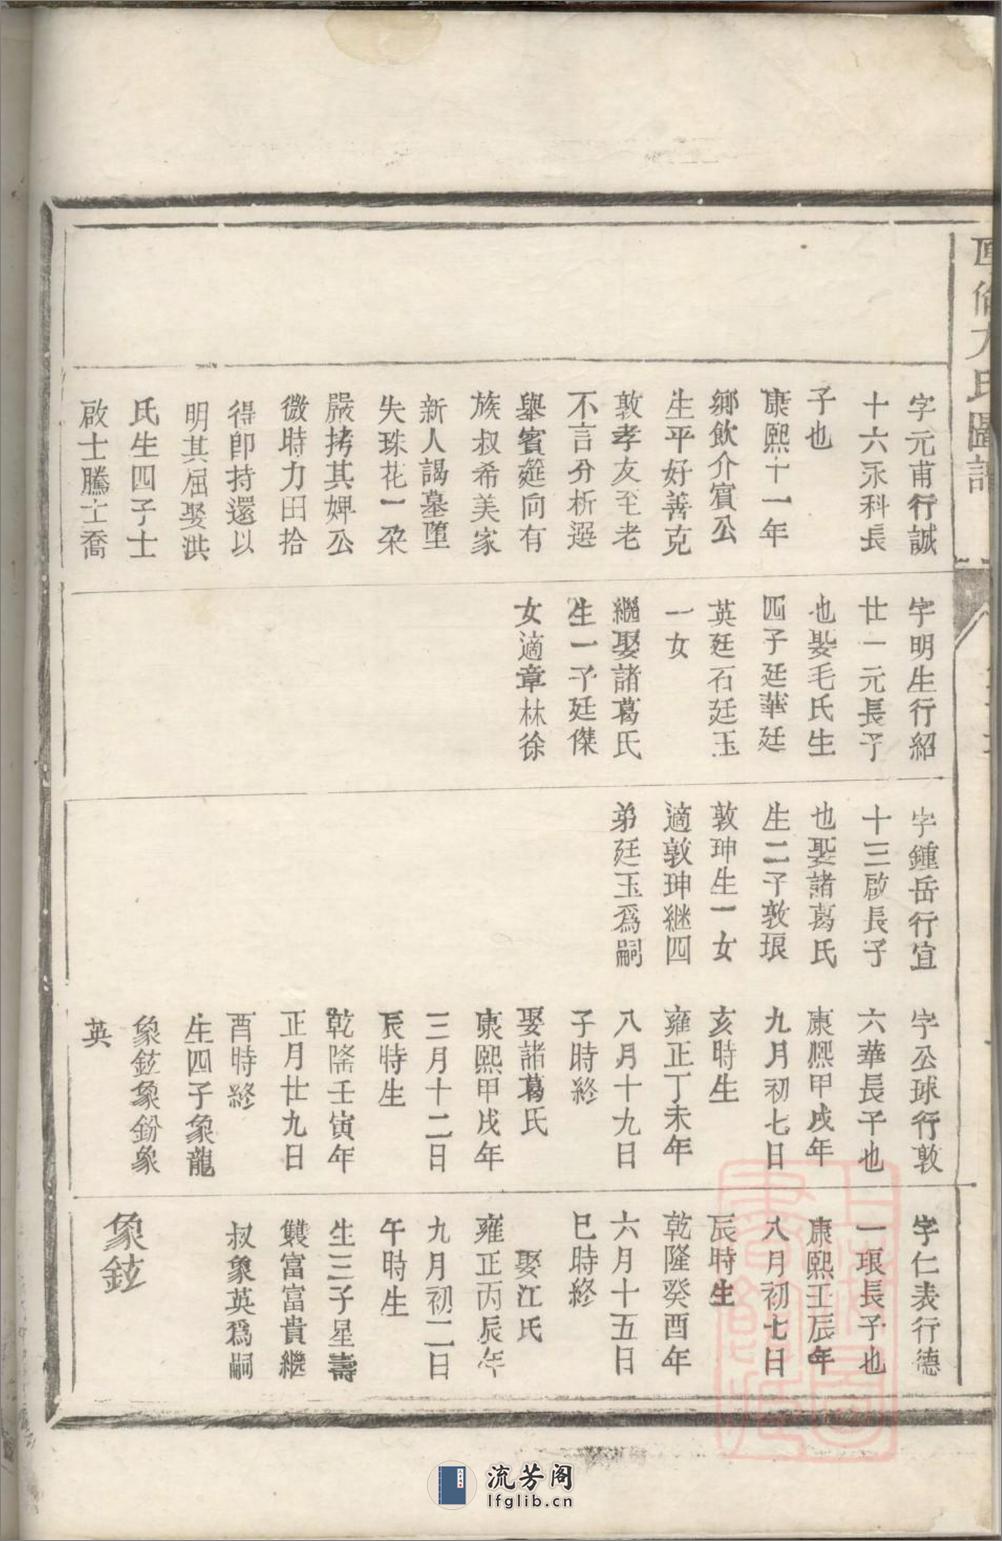 氏圖譜
字元甫行誠
十六永科長
子也
康熙十一年
鄉飲介賓公
生平好善克
敦孝友至老
不言分析選
舉賓筵向有
族叔希美家
新人謁墓墮
失珠花一朶
嚴拷其婢公
微時力田拾
得即持還以
明其屈娶洪
氏生四子士
啟士騰士喬
字明生行紹
廿一元長子
也娶毛氏生
四子廷華廷
英廷石廷玉
一女
繼娶諸葛氏
生一子廷傑
女適章林徐
字鍾岳行宜
十三啟長子
也娶諸葛氏
生二子敦琅
敦珅生一女
適敦珅継四
弟廷玉爲嗣
字公球行敦
六華長子也
康熙甲戌年
九月初七日
亥時生
雍正丁未年
八月十九日
子時終
娶諸葛氏
康熙甲戌年
三月十二日
辰時生
乾隆壬寅年
正月廿九日
酉時終
生四子象龍
象鉉象鈖象
英
字仁表行德
一琅長子也
康熙壬辰年
八月初七日
辰時生
乾隆癸酉年
六月十五日
巳時終
娶江氏
雍正丙辰年
九月初二日
午時生
生三子星壽
雙富富貴繼
叔象英爲嗣
象鉉
流芳阁
lfglib.cn